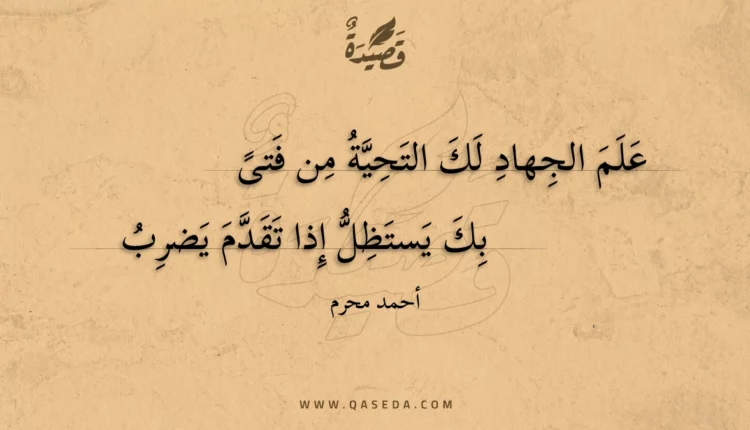 قَصِيْدَةٌ
عَلَمَ الجِهادِ لَكَ التَحِيَّةُ مِن فَتىً
بِكَ يَستَظِلُّ إِذا تَقَدَّمَ يَضرِبُ
أحمد محرم
WWW.QASEDA.COM